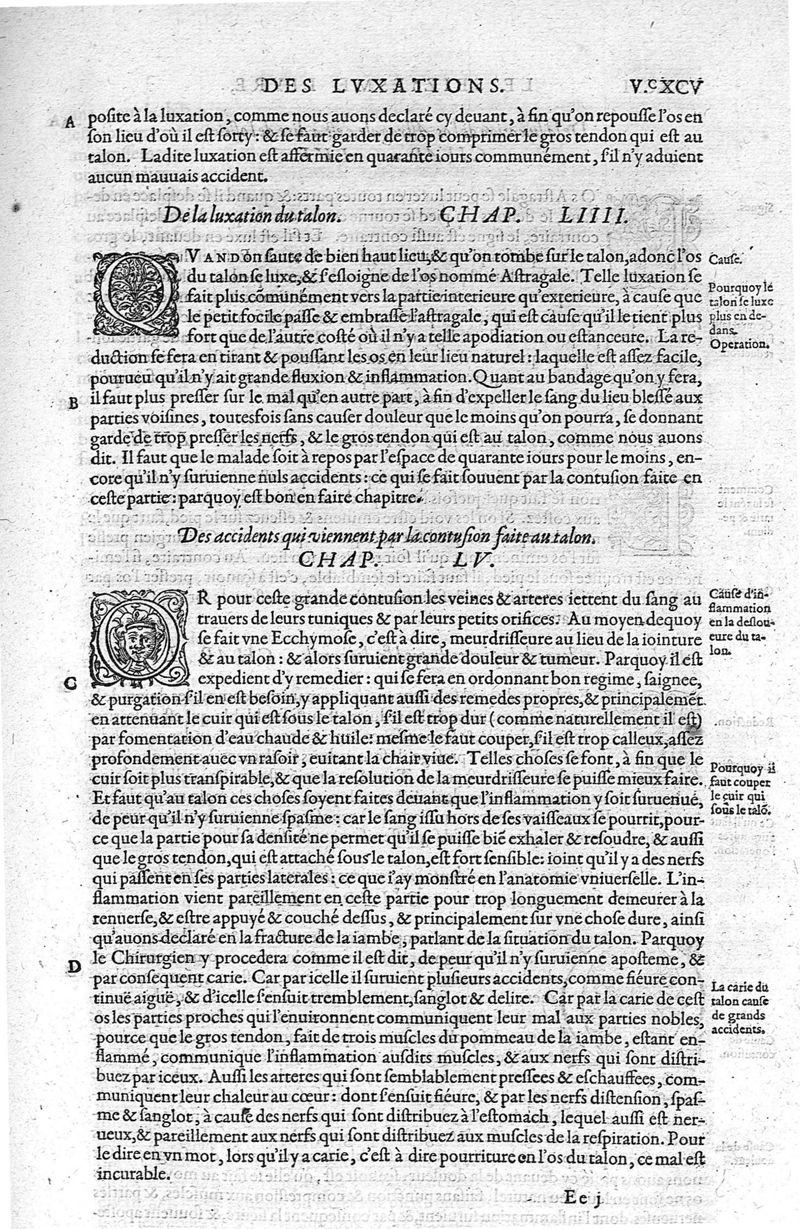 DES LVXATIONS. V.ᶜXCV
A posite à la luxation, comme nous auons declaré cy deuant, à fin qu'on repousse l'os en
son lieu d'où il est sorty: & se faut garder de trop comprimer le gros tendon qui est au
talon. Ladite luxation est affermie en quarante iours communément, s'il n'y aduient
aucun mauuais accident.
De la luxation du talon. CHAP. LIIII.
QVAND on saute de bien haut lieu, & qu'on tombe sur le talon, adonc l'os
du talon se luxe, & s'esloigne de l'os nommé Astragale. Telle luxation se
fait plus cõmunément vers la partie interieure qu'exterieure, à cause que
le petit focile passe & embrasse l'astragale, qui est cause qu'il le tient plus
fort que de l'autre costé où il n'y a telle apodiation ou estanceure. La re-
duction se fera en tirant & poussant les os en leur lieu naturel: laquelle est assez facile,
pourueu qu'il n'y ait grande fluxion & inflammation. Quant au bandage qu'on y fera,
B il faut plus presser sur le mal qu'en autre part, à fin d'expeller le sang du lieu blessé aux
parties voisines, toutesfois sans causer douleur que le moins qu'on pourra, se donnant
garde de trop presser les nerfs, & le gros tendon qui est au talon, comme nous auons
dit. Il faut que le malade soit à repos par l'espace de quarante iours pour le moins, en-
core qu'il n'y suruienne nuls accidents: ce qui se fait souuent par la contusion faite en
ceste partie: parquoy est bon en faire chapitre.
Cause.
Pourquoy le
talon se luxe
plus en de-
dans.
Operation.
Des accidents qui viennent par la contusion faite au talon.
CHAP. LV.
OR pour ceste grande contusion les veines & arteres iettent du sang au
trauers de leurs tuniques & par leurs petits orifices. Au moyen dequoy
se fait vne Ecchymose, c'est à dire, meurdrisseure au lieu de la iointure
& au talon: & alors suruient grande douleur & tumeur. Parquoy il est
C expedient d'y remedier: qui se fera en ordonnant bon regime, saignee,
& purgation s'il en est besoin, y appliquant aussi des remedes propres, & principalemẽt
en attenuant le cuir qui est sous le talon, s'il est trop dur (comme naturellement il est)
par fomentation d'eau chaude & huile: mesme le faut couper, s'il est trop calleux, assez
profondement auec vn rasoir, euitant la chair viue. Telles choses se font, à fin que le
cuir soit plus transpirable, & que la resolution de la meurdrisseure se puisse mieux faire.
Et faut qu'au talon ces choses soyent faites deuant que l'inflammation y soit suruenuë,
de peur qu'il n'y suruienne spasme: car le sang issu hors de ses vaisseaux se pourrit, pour-
ce que la partie pour sa densité ne permet qu'il se puisse biẽ exhaler & resoudre, & aussi
que le gros tendon, qui est attaché sous le talon, est fort sensible: ioint qu'il y a des nerfs
qui passent en ses parties laterales: ce que i'ay monstré en l'anatomie vniuerselle. L'in-
flammation vient pareillement en ceste partie pour trop longuement demeurer à la
renuerse, & estre appuyé & couché dessus, & principalement sur vne chose dure, ainsi
qu'auons declaré en la fracture de la iambe, parlant de la situation du talon. Parquoy
D le Chirurgien y procedera comme il est dit, de peur qu'il n'y suruienne aposteme, &
par consequent carie. Car par icelle il suruient plusieurs accidents, comme fiéure con-
tinuë aiguë, & d'icelle s'ensuit tremblement, sanglot & delire. Car par la carie de cest
os les parties proches qui l'enuironnent communiquent leur mal aux parties nobles,
pource que le gros tendon, fait de trois muscles du pommeau de la iambe, estant en-
flammé, communique l'inflammation ausdits muscles, & aux nerfs qui sont distri-
buez par iceux. Aussi les arteres qui sont semblablement pressees & eschauffees, com-
muniquent leur chaleur au cœur: dont s'ensuit fiéure, & par les nerfs distension, spas-
me & sanglot, à cause des nerfs qui sont distribuez à l'estomach, lequel aussi est ner-
ueux, & pareillement aux nerfs qui sont distribuez aux muscles de la respiration. Pour
le dire en vn mot, lors qu'il y a carie, c'est à dire pourriture en l'os du talon, ce mal est
incurable.
Cause d'in-
flammation
en la deslou-
eure du ta-
lon.
Pourquoy il
faut couper
le cuir qui
sous le talõ.
La carie du
talon cause
de grands
accidents.
Ee j